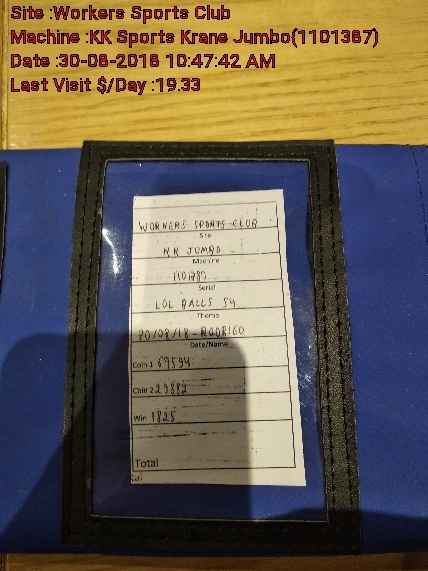 Site :Workers Sports Club
Machine :KK Sports Krane Jumbo(1101387)
Date :30-08-2018 10:47:42 AM
Last Visit $/Day :19.33
WORKERS SPORTS CLUB
Site
KK JUMBO
Machine
Serial
LOL BALLS $4
Theme
30/08/18 - RODRIGO
Date/Name
Coin 1 69594
Coin 2 29882
Win 1825
Total
tal